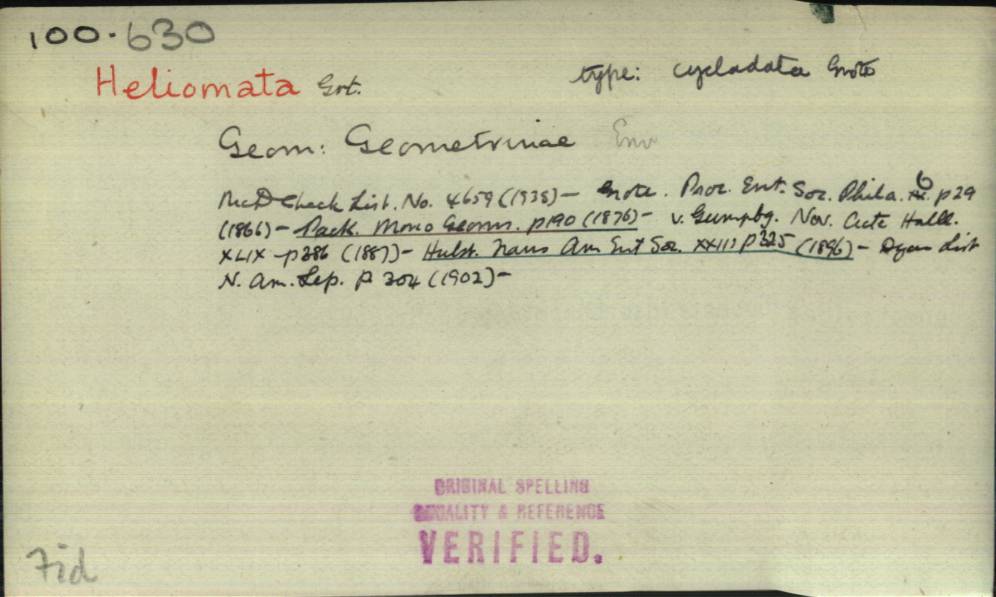 100.630
Heliomata Grt. type: cycladata Grote
Geom: Geometrinae Enn
McD Check List. No. 4659 (1938) – Grote. Proc. Ent. Soc. Phila. 6 p29
(1866) – Pack. Mono Geoms. p190 (1876) – v. Gumpbg. Nov. Acta Halle.
XLIX – p386 (1887) – Hulst. Trans Am Ent Soc. XXIII p325 (1896) – Dyar List
N. Am. Lep. p 304 (1902) –
ORIGINAL SPELLING
& REFERENCE
VERIFIED.
Fid